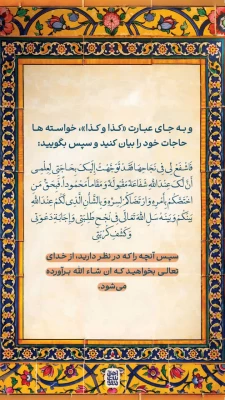 و به جای عبارت «کـذا و کـذا»، خواسـته هـا
حاجات خود را بیان کنید و سپس بگویید:
فَاشْفَعْ لِی فِی نَجَاحِهَا فَقَدْ تَوَجَّهْتُ إِلَیْکَ بِحَاجَتِی لِعِلْمِی
أَنَّ لَکَ عِنْدَ اللَّهِ شَفَاعَةً مَقْبُولَةً وَ مَقَاماً مَحْمُوداً، فَبِحَقِّ مَنِ
اخْتَصَّکُمْ بِأَمْرِهِ وَ ارْتَضَاکُمْ لِسِرِّهِ وَ بِالشَّأْنِ الَّذِی لَکُمْ عِنْدَ اللَّهِ
بَیْنَکُمْ وَ بَیْنَهُ سَلِ اللَّهَ تَعَالَی فِی نُجْحِ طَلِبَتِی وَ إِجَابَةِ دَعْوَتِی
وَ کَشْفِ کُرْبَتِی
سپس آنچه را که در نظر دارید، از خدای
تعالی بخواهید که ان شاء الله برآورده
می‌شود.